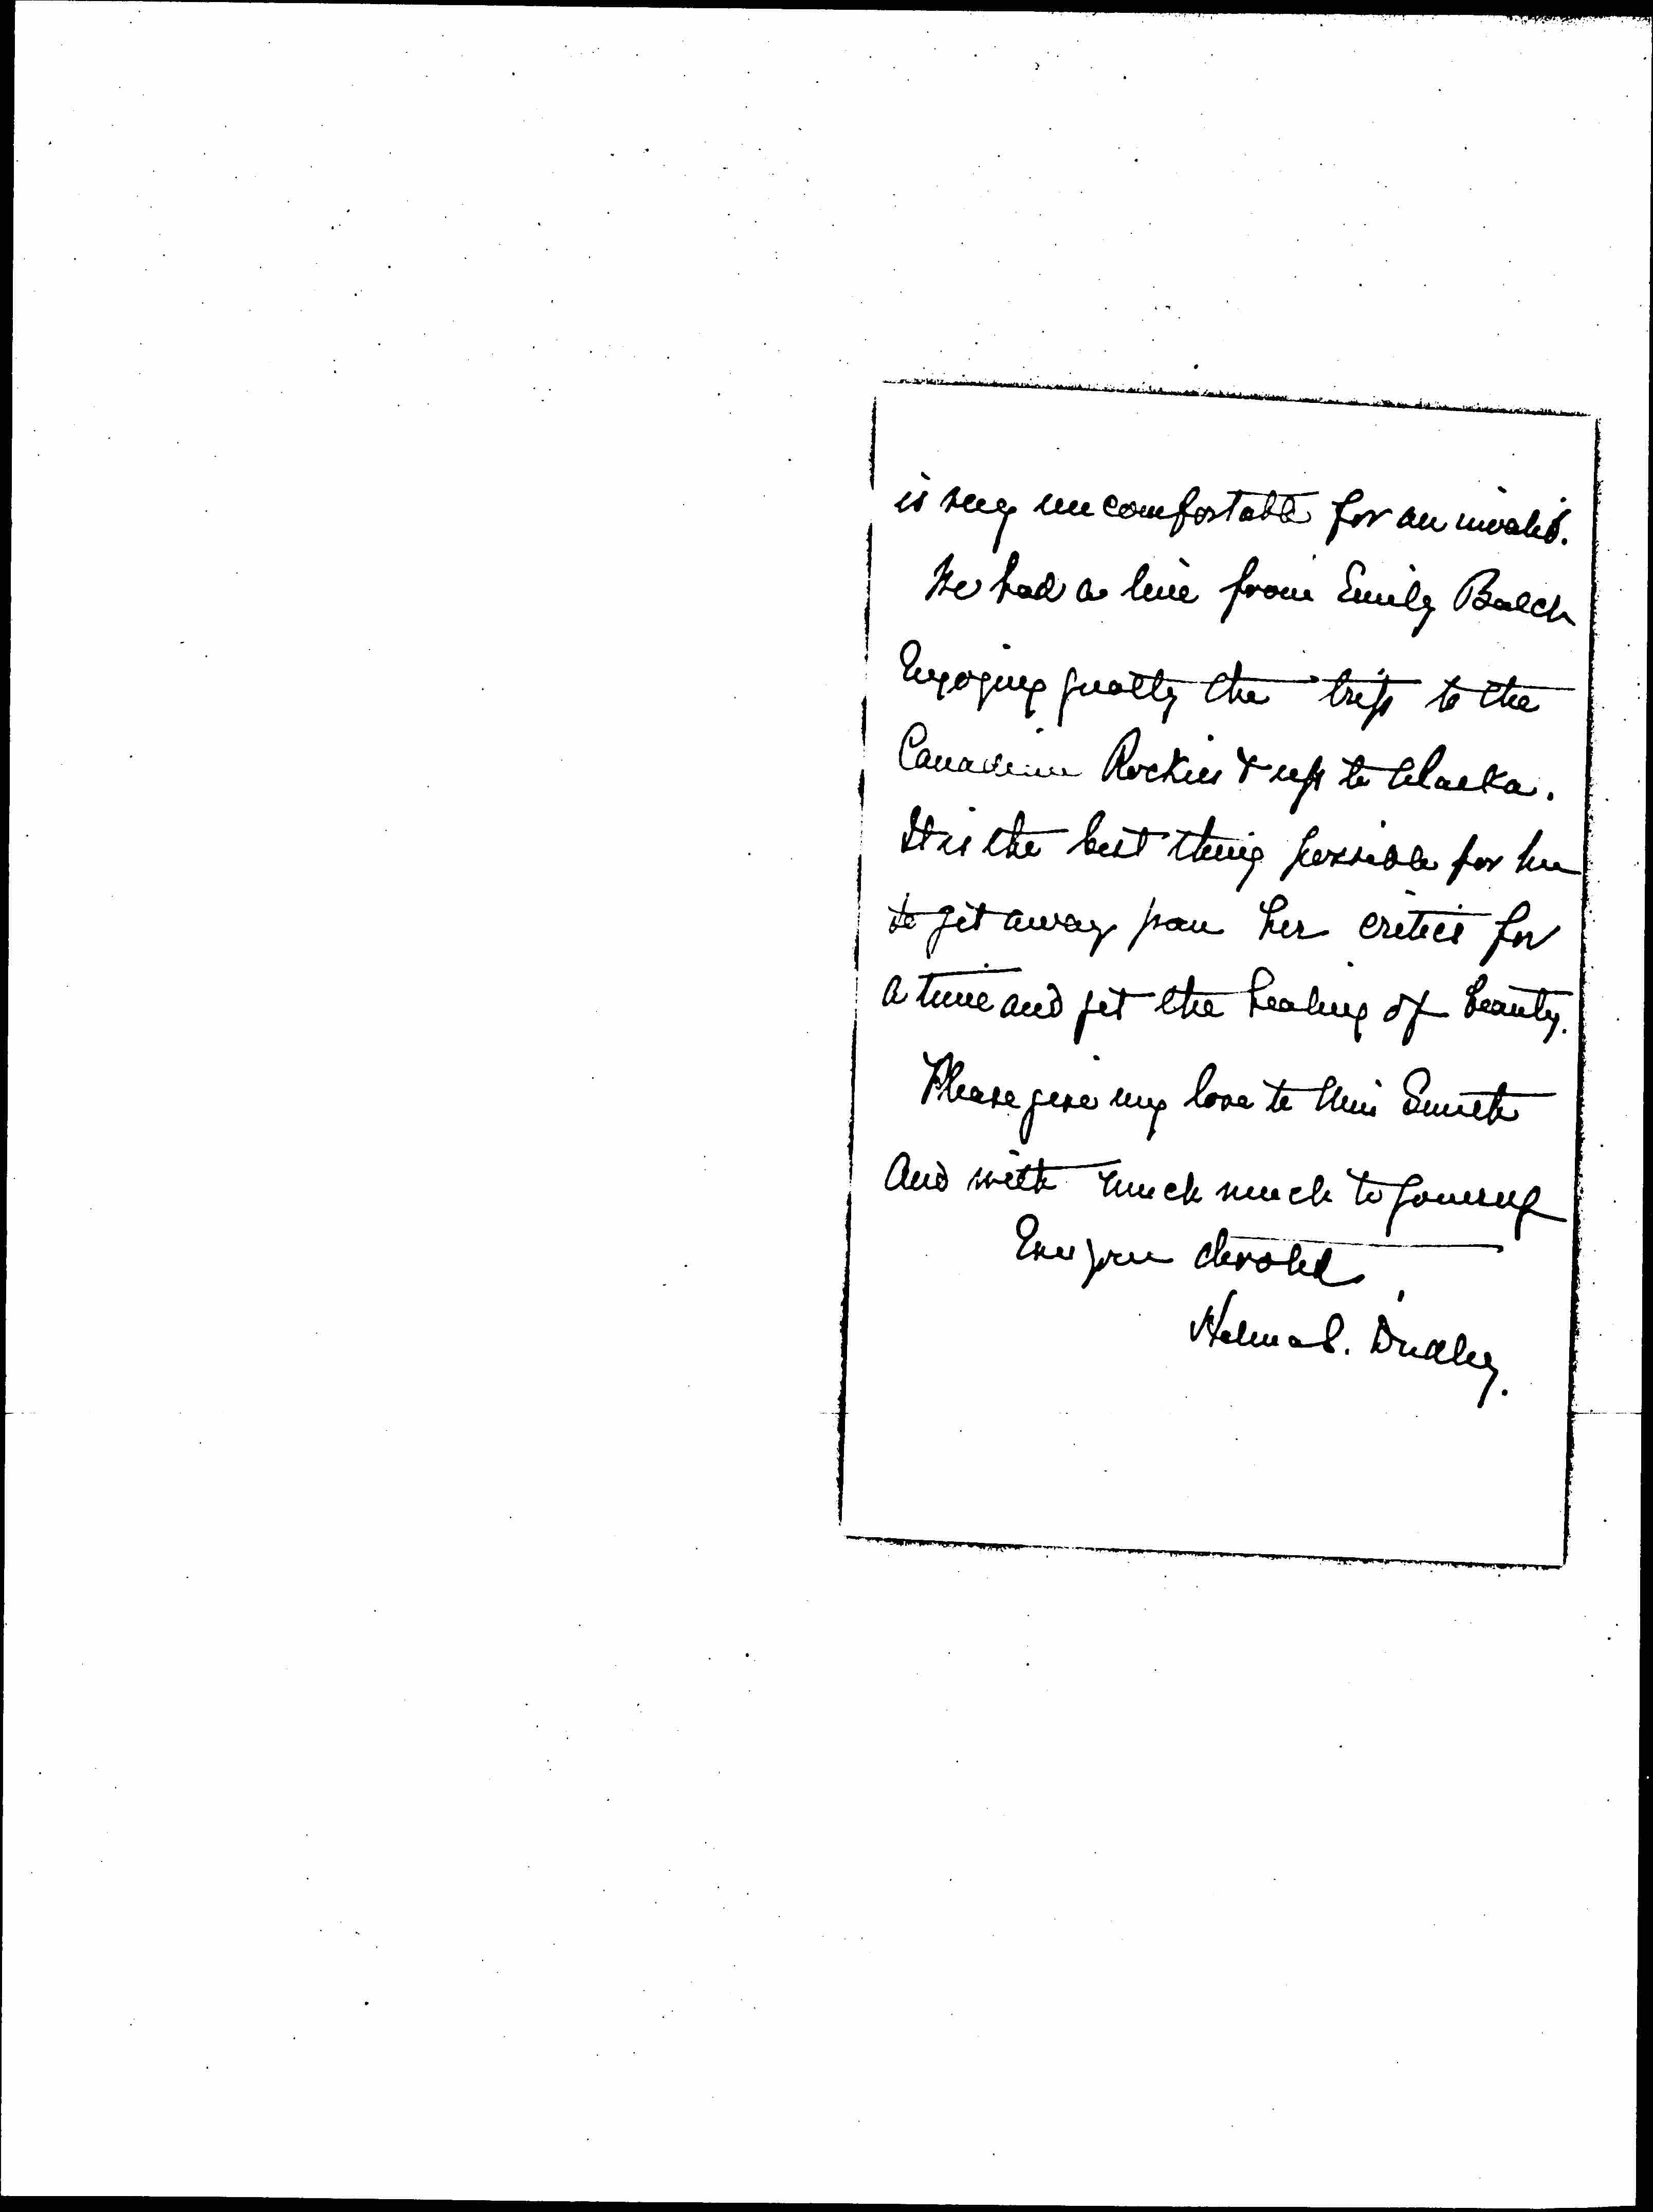 is very uncomfortable for an invalid.
We had a line from Emily Balch
Enjoying greatly the trip to the
Canadian Rockies & up to Alaska.
It is the best thing possible for her
to get away from her critics for
a time and get the healing of beauty.
Please give my love to Miss Smith
And with much much to yourself
Ever your devoted
Helena S. Dudley.